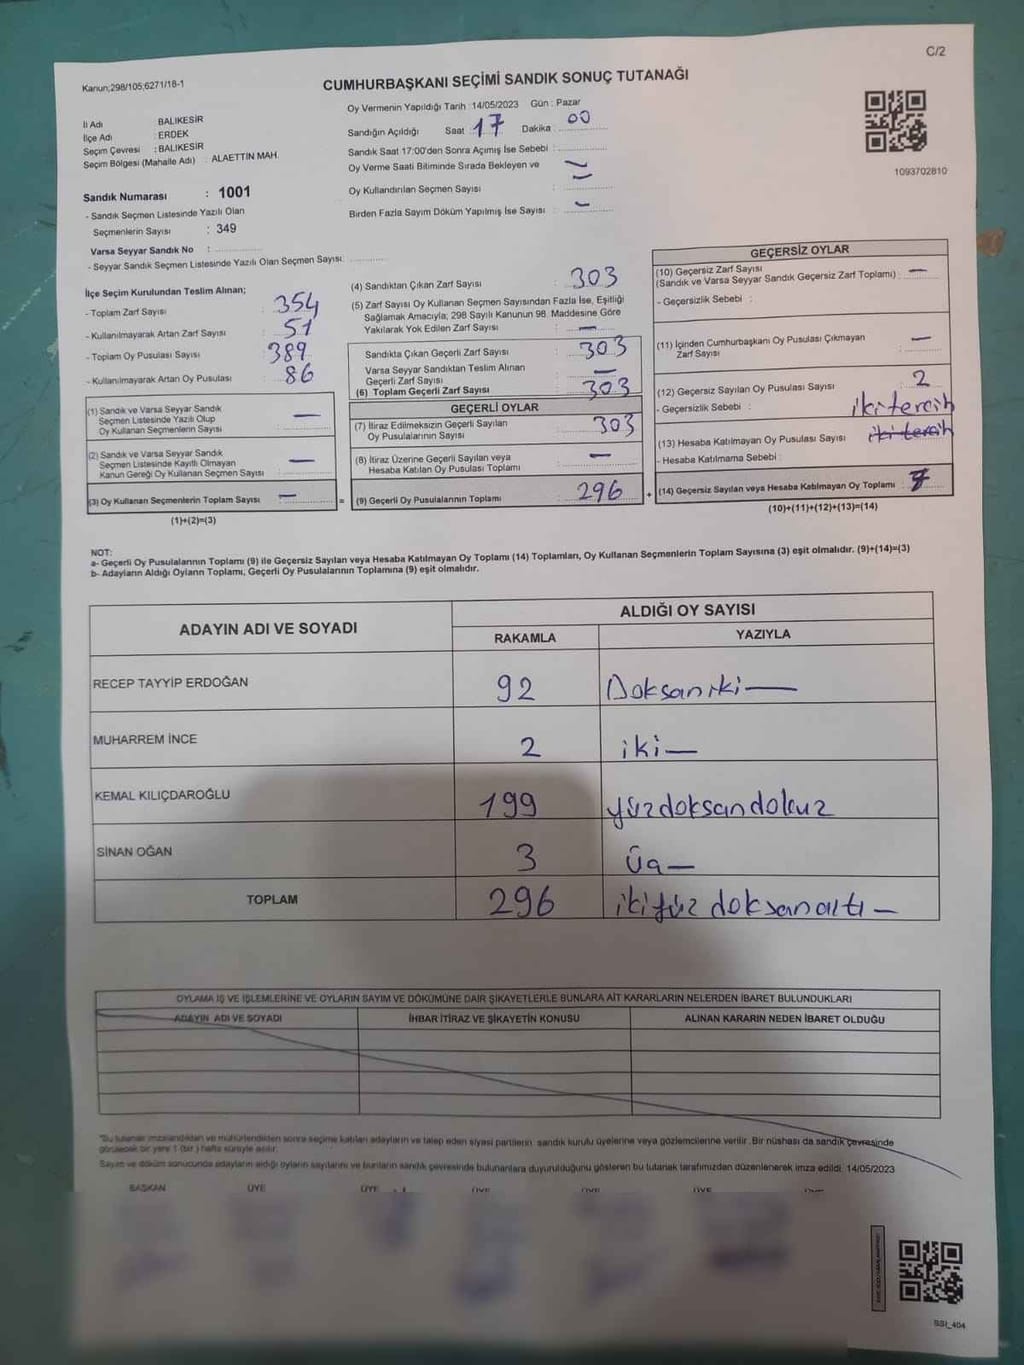 C/2
Kanun;298/105;6271/18-1
CUMHURBAŞKANI SEÇİMİ SANDIK SONUÇ TUTANAĞI
1093702810
İl Adı BALIKESİR
İlçe Adı : ERDEK
Seçim Çevresi : BALIKESİR
Seçim Bölgesi (Mahalle Adı) : ALAETTİN MAH.
Sandık Numarası : 1001
- Sandık Seçmen Listesinde Yazılı Olan
Seçmenlerin Sayısı : 349
Varsa Seyyar Sandık No :
- Seyyar Sandık Seçmen Listesinde Yazılı Olan Seçmen Sayısı:
Oy Vermenin Yapıldığı Tarih :14/05/2023 Gün : Pazar
Sandığın Açıldığı Saat 17 Dakika 00
Sandık Saat 17:00'den Sonra Açımış İse Sebebi :
Oy Verme Saati Bitiminde Sırada Bekleyen ve
Oy Kullandırılan Seçmen Sayısı : —
Birden Fazla Sayım Döküm Yapılmış İse Sayısı : —
İlçe Seçim Kurulundan Teslim Alınan;
- Toplam Zarf Sayısı : 354
- Kullanılmayarak Artan Zarf Sayısı : 51
- Toplam Oy Pusulası Sayısı : 389
- Kullanılmayarak Artan Oy Pusulası : 86
(1) Sandık ve Varsa Seyyar Sandık
Seçmen Listesinde Yazılı Olup
Oy Kullanan Seçmenlerin Sayısı : —
(2) Sandık ve Varsa Seyyar Sandık
Seçmen Listesinde Kayıtlı Olmayan
Kanun Gereği Oy Kullanan Seçmen Sayısı : —
(3) Oy Kullanan Seçmenlerin Toplam Sayısı : — =
(1)+(2)=(3)
(4) Sandıktan Çıkan Zarf Sayısı : 303
(5) Zarf Sayısı Oy Kullanan Seçmen Sayısından Fazla İse, Eşitliği
Sağlamak Amacıyla; 298 Sayılı Kanunun 98. Maddesine Göre
Yakılarak Yok Edilen Zarf Sayısı : —
Sandıkta Çıkan Geçerli Zarf Sayısı : 303
Varsa Seyyar Sandıktan Teslim Alınan
Geçerli Zarf Sayısı : —
(6) Toplam Geçerli Zarf Sayısı : 303
GEÇERLİ OYLAR
(7) İtiraz Edilmeksizin Geçerli Sayılan
Oy Pusulalarının Sayısı : 303
(8) İtiraz Üzerine Geçerli Sayılan veya
Hesaba Katılan Oy Pusulası Toplamı : —
(9) Geçerli Oy Pusulalarının Toplamı : 296 +
GEÇERSİZ OYLAR
(10) Geçersiz Zarf Sayısı
(Sandık ve Varsa Seyyar Sandık Geçersiz Zarf Toplamı) : —
- Geçersizlik Sebebi :
(11) İçinden Cumhurbaşkanı Oy Pusulası Çıkmayan
Zarf Sayısı : —
(12) Geçersiz Sayılan Oy Pusulası Sayısı : 2
- Geçersizlik Sebebi : iki tercih
(13) Hesaba Katılmayan Oy Pusulası Sayısı : iki tercih
- Hesaba Katılmama Sebebi :
(14) Geçersiz Sayılan veya Hesaba Katılmayan Oy Toplamı : 7
(10)+(11)+(12)+(13)=(14)
NOT:
a- Geçerli Oy Pusulalarının Toplamı (9) ile Geçersiz Sayılan veya Hesaba Katılmayan Oy Toplamı (14) Toplamları, Oy Kullanan Seçmenlerin Toplam Sayısına (3) eşit olmalıdır. (9)+(14)=(3)
b- Adayların Aldığı Oyların Toplamı, Geçerli Oy Pusulalarının Toplamına (9) eşit olmalıdır.
ADAYIN ADI VE SOYADI
ALDIĞI OY SAYISI
RAKAMLA YAZIYLA
RECEP TAYYİP ERDOĞAN 92 Doksaniki—
MUHARREM İNCE 2 iki—
KEMAL KILIÇDAROĞLU 199 yüzdoksandokuz
SİNAN OĞAN 3 Üç—
TOPLAM 296 ikiyüz doksanaltı—
OYLAMA İŞ VE İŞLEMLERİNE VE OYLARIN SAYIM VE DÖKÜMÜNE DAİR ŞİKAYETLERLE BUNLARA AİT KARARLARIN NELERDEN İBARET BULUNDUKLARI
ADAYIN ADI VE SOYADI İHBAR İTİRAZ VE ŞİKAYETİN KONUSU ALINAN KARARIN NEDEN İBARET OLDUĞU
"Bu tutanak imzalandıktan ve mühürlendikten sonra seçime katılan adayların ve talep eden siyasi partilerin sandık kurulu üyelerine veya gözlemcilerine verilir. Bir nüshası da sandık çevresinde
görülecek bir yere 1 (bir) hafta süreyle asılır.
Sayım ve döküm sonucunda adayların aldığı oyların sayılarını ve bunların sandık çevresinde bulunanlara duyurulduğunu gösteren bu tutanak tarafımızdan düzenlenerek imza edildi. 14/05/2023
BAŞKAN ÜYE ÜYE ÜYE ÜYE ÜYE
SSI_404